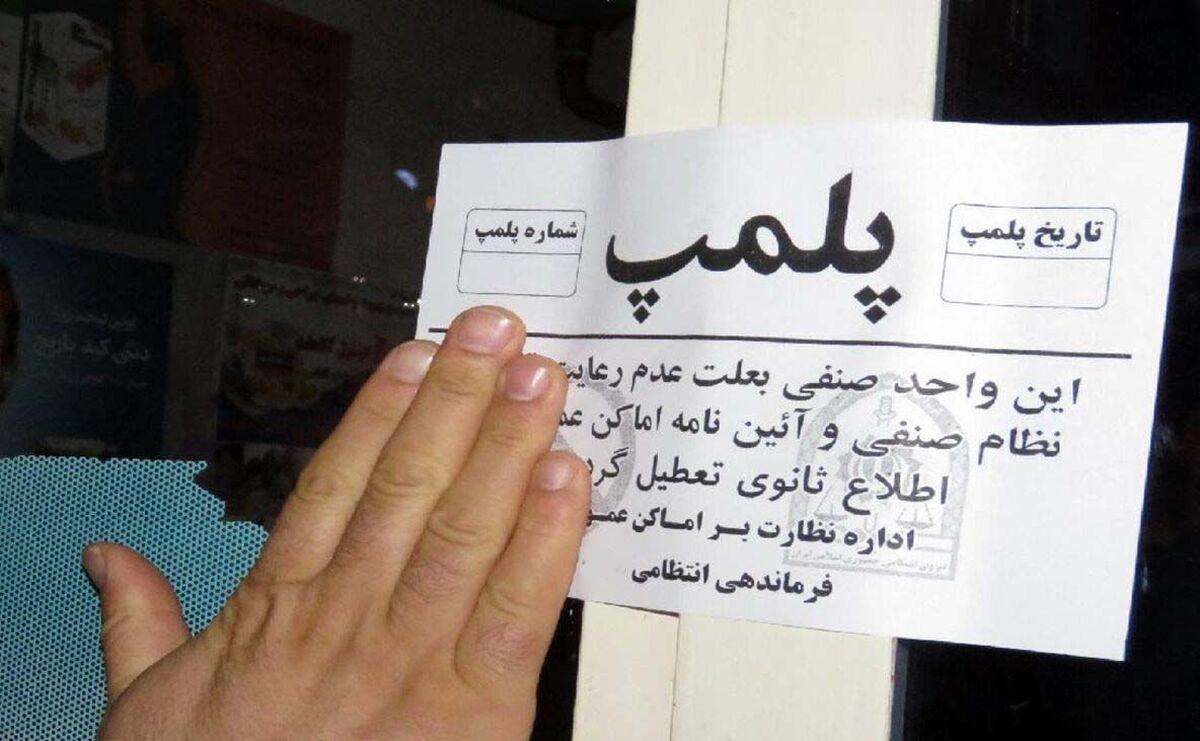 پلمپ
تاریخ پلمپ
شماره پلمپ
این واحد صنفی بعلت عدم رعایت
نظام صنفی و آئین نامه اماکن
اطلاع ثانوی تعطیل
اداره نظارت بر اماکن
فرماندهی انتظامی
نیروی انتظامی جمهوری اسلامی ایران